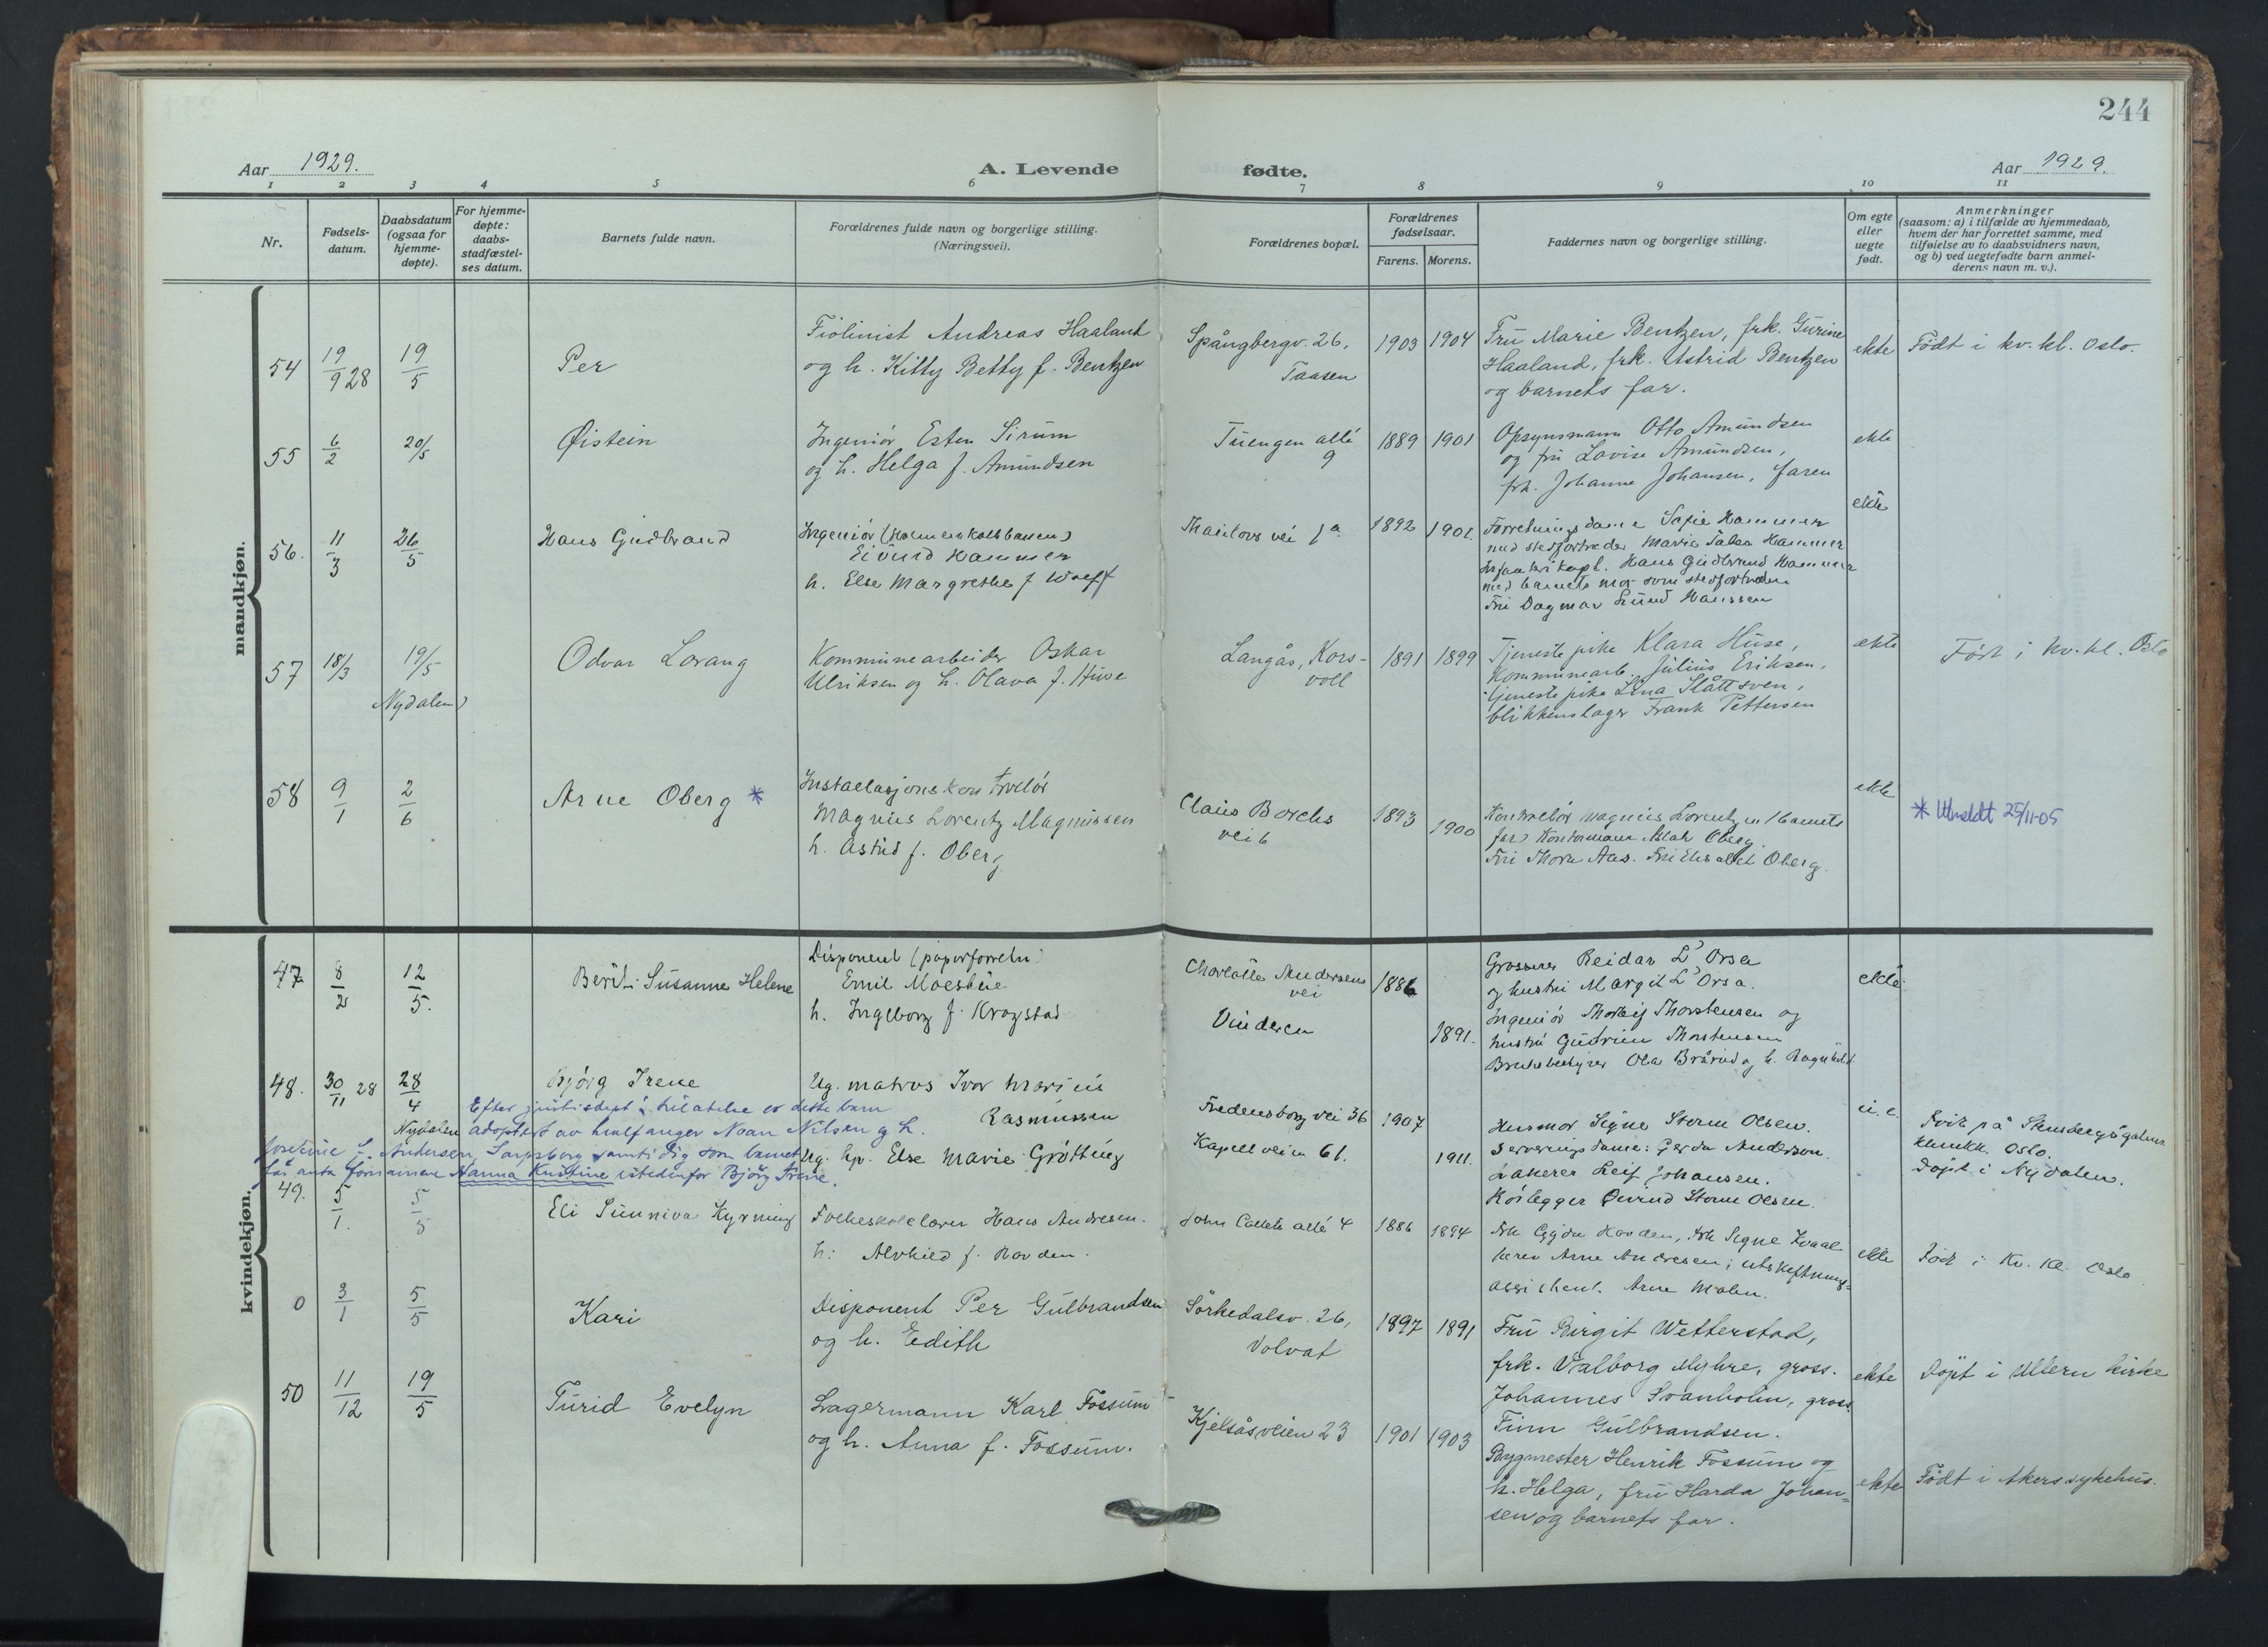 244
Aar 1929.
A. Levende
fødte.
Aar 1929.
1 2 3 4 5 6 7 8 9 10 11
Nr.
Fødsels-
datum.
Daabsdatum
(ogsaa for
hjemme-
døpte).
For hjemme-
døpte:
daabs-
stadfæstel-
ses datum.
Barnets fulde navn.
Forældrenes fulde navn og borgerlige stilling.
(Næringsvei).
Forældrenes bopæl.
Forældrenes
fødselsaar.
Farens. Morens.
Faddernes navn og borgerlige stilling.
Om egte
eller
uegte
født.
Anmerkninger
(saasom: a) i tilfælde av hjemmedaab,
hvem der har forrettet samme, med
tilføielse av to daabsvidners navn,
og b) ved uegtefødte barn anmel-
derens navn m. v.).
mandkjøn.
54
19/9 28
19/5
Per
Fiolinist Andreas Haaland
og h. Kitty Betty f. Bentzen
Spångbergv. 26,
Taasen
1903 1904
Fru Marie Bentzen, frk. Gurine
Haaland, frk. Astrid Bentzen
og barnets far.
ekte
Födt i kv. kl. Oslo.
55
6/2
20/5
Øistein
Ingeniör Esten Sirum
og h. Helga f. Amundsen
Tuengen allé
9
1889 1901
Opsynsmann Otto Amundsen
og fru Lovise Amundsen,
frk. Johanne Johansen, faren
ekte
56.
11/3
26/5
Hans Gudbrand
Ingeniör (Holmenkolbanen)
Eivind Hammer
h. Else Margrethe f Wolff
Thaulows vei 1a
1892 1901.
Forretningsdame Sofie Hammer
med stedfortreder Marie Hammer
kapt. Hans Gudbrand Hammer
med barnets mor som stedfortreder
Fru Dagmar Lund Hanssen
ekte
57
18/3
19/5
Nydalen)
Odvar Lorang
Kommunearbeider Oskar
Ulriksen og h. Olava f. Huse
Langås, Kors-
voll
1891 1899
Tjenestepike Klara Huse,
Kommunearb. Julius Eriksen,
tjenestepike Lina Slåttsven,
blikkenslager Frank Pettersen
ekte
Født i kv. kl. Oslo
58
9/1
2/6
Arne Oberg *
Installasjonskontrolör
Magnus Lorentz Magnussen
h. Astrid f. Oberg
Claus Borchs
vei 6
1893 1900
Kontrolör Magnus Lorentzen (barnets
far) Kontormann Oberg
Fru Thora Aas. Fru Elisabet Oberg.
ekte
* Utmeldt 25/11-05
kvindekjøn.
47
8/2
12/5.
Berit Susanne Helene
Disponent (papirforretn)
Emil Moestue
h. Ingeborg f. Krogstad
Charlotte Andersens
vei
Vinderen
1886
1891.
Grosserer Reidar L'Orsa
og hustru Margit L'Orsa.
Ingeniör Thorleif Thorstensen og
hustru Gudrun Thorstensen
Bruksbestyrer Ola Brårud og h. Ragnhild
ekte.
48.
30/11 28
28/4
Nydalen
Bjørg Irene
Ug. matros Ivar Marius
Rasmussen
Ug. hp. Else Marie Grötting
Efter justisdept's tillatelse er dette barn
adoptert av hvalfanger Noan Nilsen og h.
Josefine f. Andersen, Sarpsborg samtidig som barnet
får anta fornavnene Hanna Kristine istedenfor Bjørg Irene.
Fredensborg vei 36
Kapellveien 61.
1907
1911.
Husmor Signe Storm Olsen.
Serveringsdame: Gerda Anderson.
Lakerer Leif Johansen.
Rörlegger Öivind Storm Olsen.
u.e.
Född på Stensberggatens
klinikk. Oslo.
Döpt i Nydalen.
49.
5/1.
5/5
Eli Sunniva Kyrning
Folkeskolelærer Hans Andresen.
h: Alvhild f. Hovden.
John Colletts allé 4
1886 1894
Frk Gyda Hovden, Frk Signe Kvaal
herr Arne Andresen, utskiftnings-
assistent. Arne Molen.
ekte
Född i Kv. Kl. Oslo.
0
3/1
5/5
Kari
Disponent Per Gulbrandsen
og h. Edith
Sörkedalsv. 26,
Volvat
1897 1891
Fru Birgit Wetterstad,
frk. Valborg Myhre, gross.
Johannes Svanholm, gross.
Finn Gulbrandsen.
ekte
Döpt i Ullern kirke
50
11/12
19/5
Turid Evelyn
Lagermann Karl Fossum
og h. Anna f. Fossum.
Kjelsåsveien 23
1901 1903
Bygmester Henrik Fossum og
h. Helga, fru Harda Johan-
sen og barnets far.
ekte
Födt i Akers sykehus.